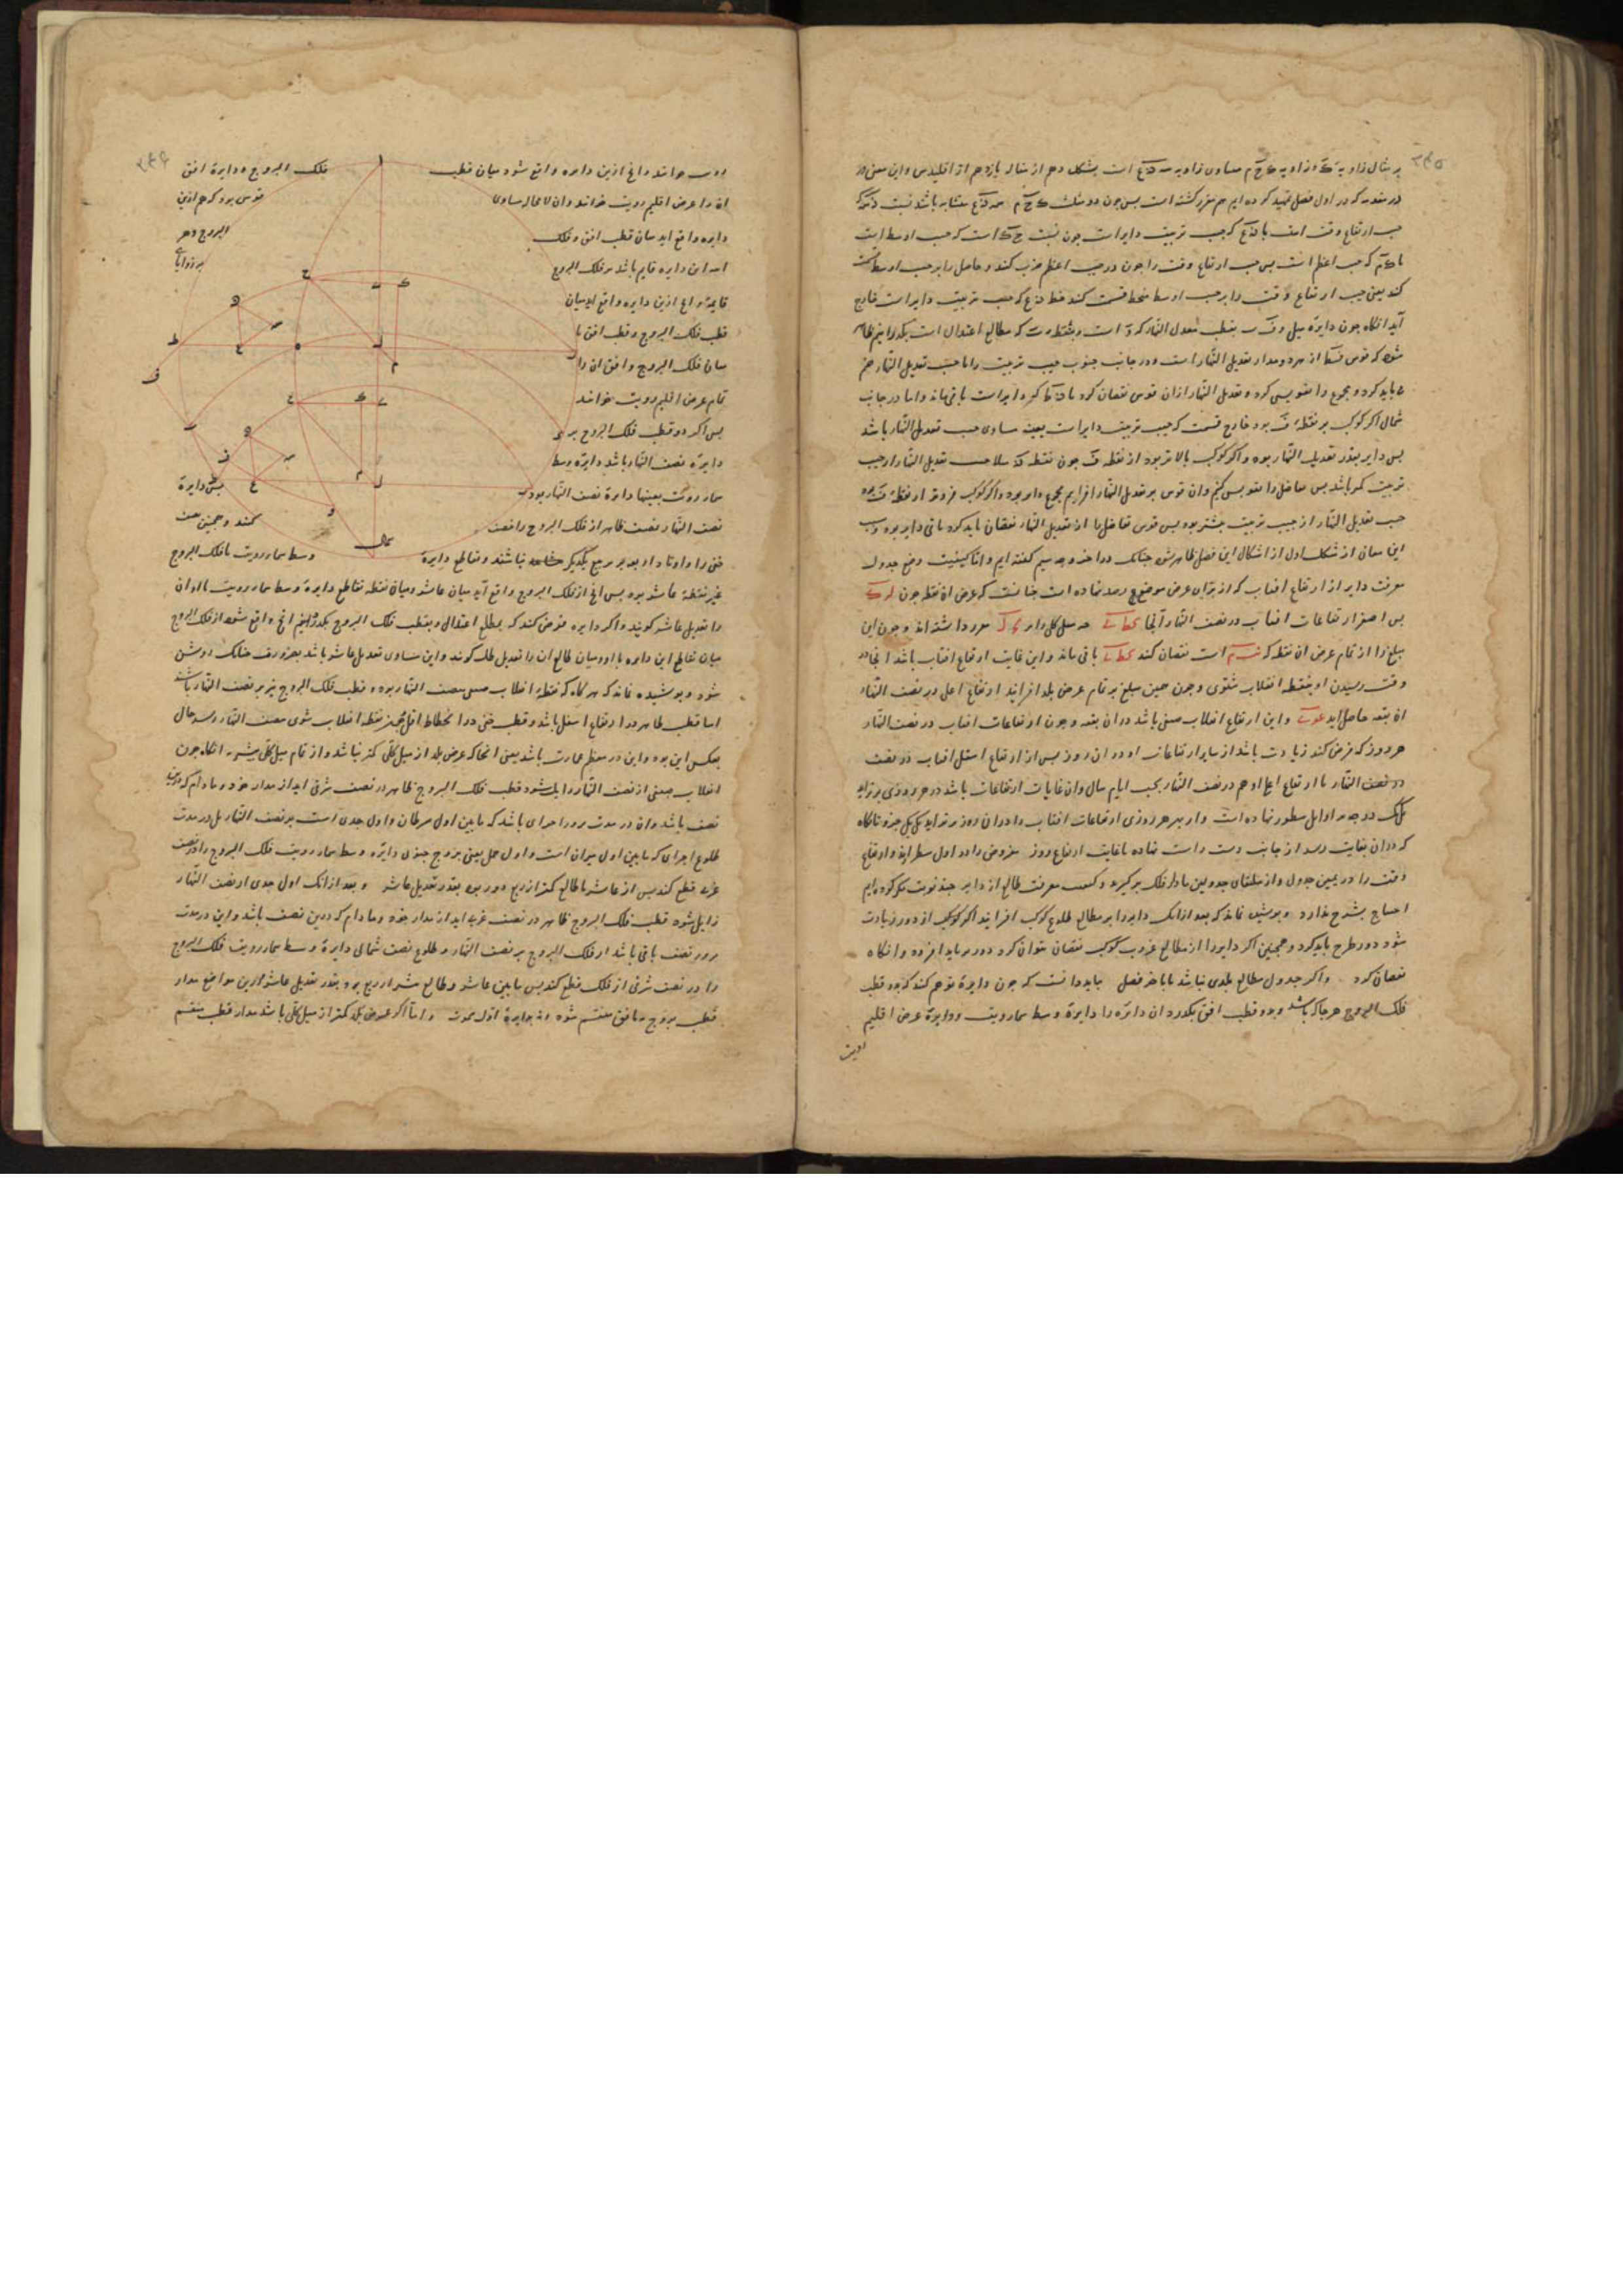 در مقدمه که در اول فصل تمهید کرده ایم هم مقرر گشته است پس چون دو مثلث
جیب ارتفاع وقت است با که جیب ترتیب دایر است چون نسبت است که جیب اوسط است
که جیب اعظم است پس جیب ارتفاع وقت را چون در جیب اعظم ضرب کند و حاصل را بر جیب اوسط قسمت
کند یعنی جیب ارتفاع وقت را بر جیب اوسط منحط قسمت کند خط که جیب ترتیب دایر است خارج
آید انکاه چون دایرهٔ میل بقطب معدل النهار که است و بنقطه که مطالع اعتدال است بگذرانیم ظاهر
شود که قوس از مدار تعدیل النهار است و در جانب جنوب جیب ترتیب را با جیب تعدیل النهار جمع
باید کرد و مجموع را مقوس کرد و تعدیل النهار ازان قوس نقصان کرد تا که دایر است باقی ماند و اما در جانب
شمال اگر کوکب بر نقطهٔ ف بود خارج قسمت که جیب ترتیب دایر است بعینه مساوی جیب تعدیل النهار باشد
پس دایر بقدر تعدیل النهار بود و اگر کوکب بالاتر بود از نقطه ف چون نقطه
ترتیب کمتر باشد پس حاصل را مقوس کنیم وان قوس بر تعدیل النهار افزاییم مجموع دایر بود و اگر کوکب فروتر از نقطهٔ ف بود
جیب تعدیل النهار از جیب ترتیب بیشتر بود پس قوس تفاضل را از تعدیل النهار نقصان باید کرد باقی دایر بود و
این معانی از شکل اول از اشکال این فصل ظاهر شود چنانک در اخر وجه سیم گفته ایم و اما کیفیت وضع جدول
معرفت دایر از ارتفاع افتاب که از برای عرض موضع رصد نهاده است چنانست که عرض ان نقطه چون
پس اصغر ارتفاعات افتاب در نصف النهار آنجا
مبلغ را از تمام عرض ان نقطه که است نقصان کند باقی ماند و این غایت ارتفاع افتاب باشد انجا در
وقت رسیدن او بنقطه انقلاب شتوی و چون همین مبلغ بر تمام عرض بلد افزایند ارتفاع اعلی در نصف النهار
ان بقعه حاصل اید و این ارتفاع انقلاب صیفی باشد دران بقعه و چون ارتفاعات افتاب در نصف النهار
هر روز که فرض کند زیادت باشد از سایر ارتفاعات او در ان روز پس از ارتفاع اسفل افتاب در نصف
در نصف النهار تا ارتفاع اعلی او هم در نصف النهار بحسب ایام سال وان غایات ارتفاعات باشد در هر روزی بر تزاید
یک یک درجه در اوایل سطور نهاده است و از بهر هر روزی ارتفاعات افتاب را دران روز بر تزاید یک یک جزو تا انکاه
که دران بغایت رسد از جانب دست راست نهاده تا غایت ارتفاع روز مفروض را در اول سطر یابند و ارتفاع
وقت را در یمین جدول و از ملتقای جدولین ما دار فلک برگیرند و کیفیت معرفت طالع از دایر چند نوبت ذکر کرده ایم
احتیاج بشرح ندارد و پوشیده نماند که بعد ازانک دایر را بر مطالع طلوع کوکب افزایند اگر کوکب از دور زیادت
شود دور طرح باید کرد و همچنین اگر دایر را از مطالع غروب کوکب نقصان نتوان کرد دور بر باید افزود و انکاه
نقصان کرد و اگر جدول مطالع بلدی نباشد تا باخر فصل بباید دانست که چون دایرهٔ توهم کنند که بدو قطب
فلک البروج هرجا که باشد و بدو قطب افق بگذرد ان دایره را دایرهٔ وسط سماء رویت و دایرهٔ عرض اقلیم
رویت
رویت خوانند وانچ ازین دایره واقع شود میان قطب فلک البروج و دایرهٔ افق
ان را عرض اقلیم رویت خوانند وان لا محاله مساوی قوسی بود که هم ازین
دایره واقع اید میان قطب افق و فلک البروج و هر
اینه این دایره قایم باشد بر فلک البروج بر زوایای
قایمه وانچ ازین دایره واقع اید میان
قطب فلک البروج و قطب افق یا
میان فلک البروج و افق ان را
تمام عرض اقلیم رویت خوانند
پس اگر دو قطب فلک البروج بر
دایره نصف النهار باشد دایره وسط
سماء رویت بعینها دایرهٔ نصف النهار بود پس دایرهٔ
نصف النهار نصف ظاهر از فلک البروج را نصف کند و همچنین نصف
خفی را و اوتاد اربعه بر ربع یکدیگر نباشند و تقاطع دایرهٔ وسط سماء رویت با فلک البروج
غیر نقطهٔ عاشر بود پس انچ از فلک البروج واقع آید میان عاشر و میان نقطه تقاطع دایرهٔ وسط سماء رویت با او ان
را تعدیل عاشر گویند و اگر دایره فرض کند که بمطلع اعتدال و بقطب فلک البروج بگذرد انچ واقع شود از فلک البروج
میان تقاطع این دایره با او و میان طالع ان را تعدیل طالع گویند و این مساوی تعدیل عاشر باشد بضرورت چنانک روشن
شود و پوشیده نماند که هر گاه که نقطهٔ انقلاب صیفی بنصف النهار بود و قطب فلک البروج نیز بر نصف النهار باشد
اما قطب ظاهر در ارتفاع اسفل باشد و قطب خفی در انحطاط اقل و چون نقطه انقلاب شتوی بنصف النهار رسد حال
بعکس این بود و این در معظم عمارت باشد یعنی انجا که عرض بلد از میل کلی کمتر نباشد و از تمام میل کلی بیشتر نه انکاه چون
انقلاب صیفی از نصف النهار زایل شود قطب فلک البروج ظاهر در نصف شرقی اید از مدار خود و مادام که درین
نصف باشد وان در مدت مرور اجزای باشد که مابین اول سرطان و اول جدی است بر نصف النهار بل در مدت
طلوع اجزای که مابین اول میزان است و اول حمل یعنی بروج جنوبی دایره وسط سماء رویت فلک البروج را در نصف
غربی قطع کند پس از عاشر تا طالع کمتر از ربع دور بود بقدر تعدیل عاشر و بعد ازانک اول جدی از نصف النهار
زایل شود قطب فلک البروج ظاهر در نصف غربی اید از مدار خود و مادام که درین نصف باشد و این در مدت
مرور نصف باقی باشد از فلک البروج بر نصف النهار و طلوع نصف شمالی دایرهٔ وسط سماء رویت فلک البروج
را در نصف شرقی از فلک قطع کند پس مابین عاشر و طالع بیشتر از ربع بود بقدر تعدیل عاشر و درین مواضع مدار
قطب بروج بافق منقسم نشود و نه بدایرهٔ اول سموت و اما اگر عرض بلد کمتر از میل کلی باشد مدار قطب منقسم